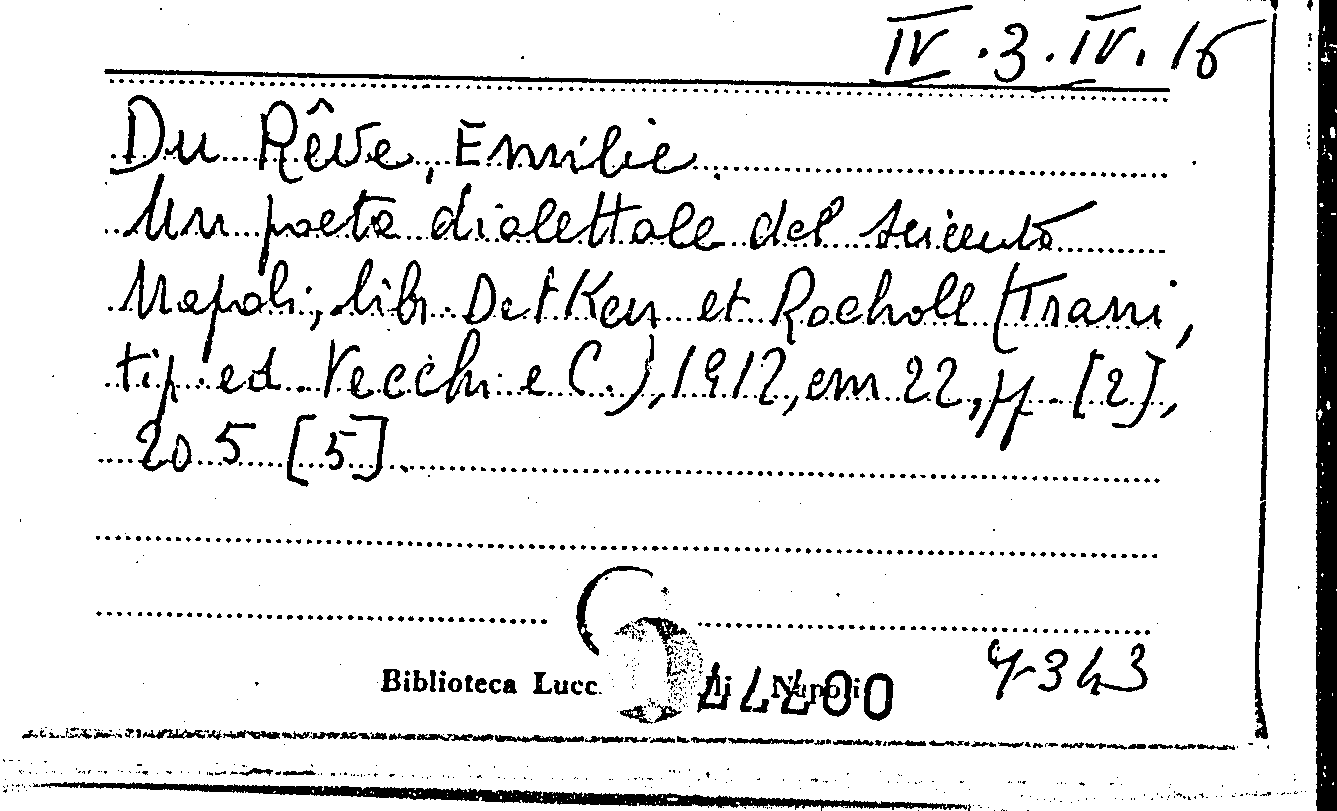 IV.3.IV.16
Du Rêve, Emilie.
Un poeta dialettale del seicento
Napoli, libr. Detken et Rocholl (Trani,
tip. ed. Vecchi e C.), 1912, cm 22, pp. [2],
205 [5].
Biblioteca Lucc di Napoli